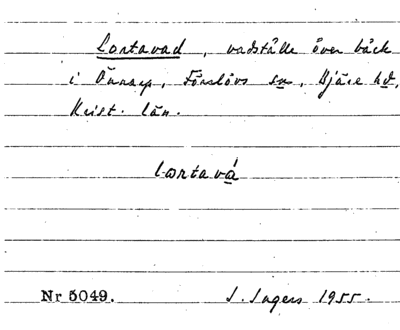 Lortavad, vadställe över bäck
i Önnarp, Förslövs sn, Bjäre hd,
Krist. län.
lortavá
Nr 5049. S. Ingers 1955.